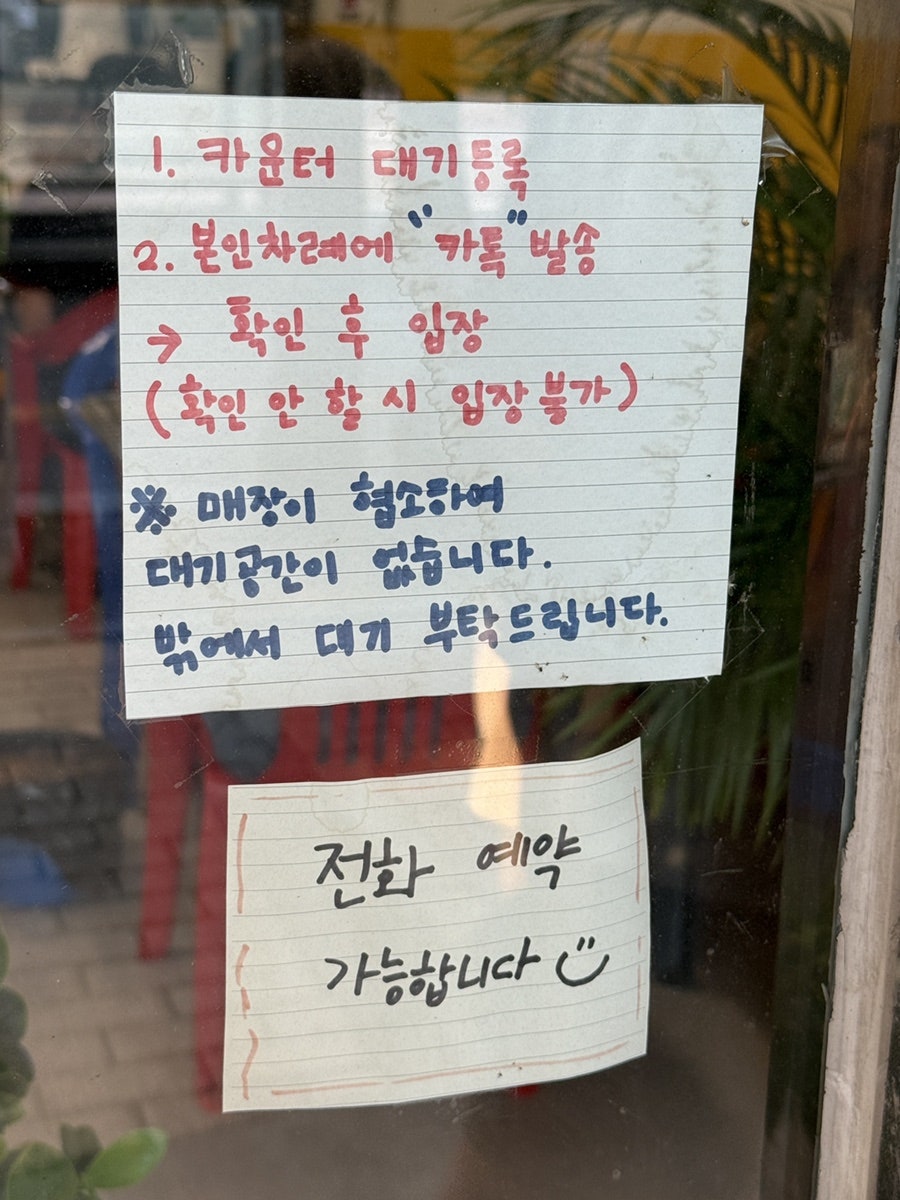 1. 카운터 대기등록
2. 본인차례에 "카톡" 발송
→ 확인 후 입장
(확인 안 할 시 입장불가)
※ 매장이 협소하여
대기공간이 없습니다.
밖에서 대기 부탁드립니다.
전화 예약
가능합니다